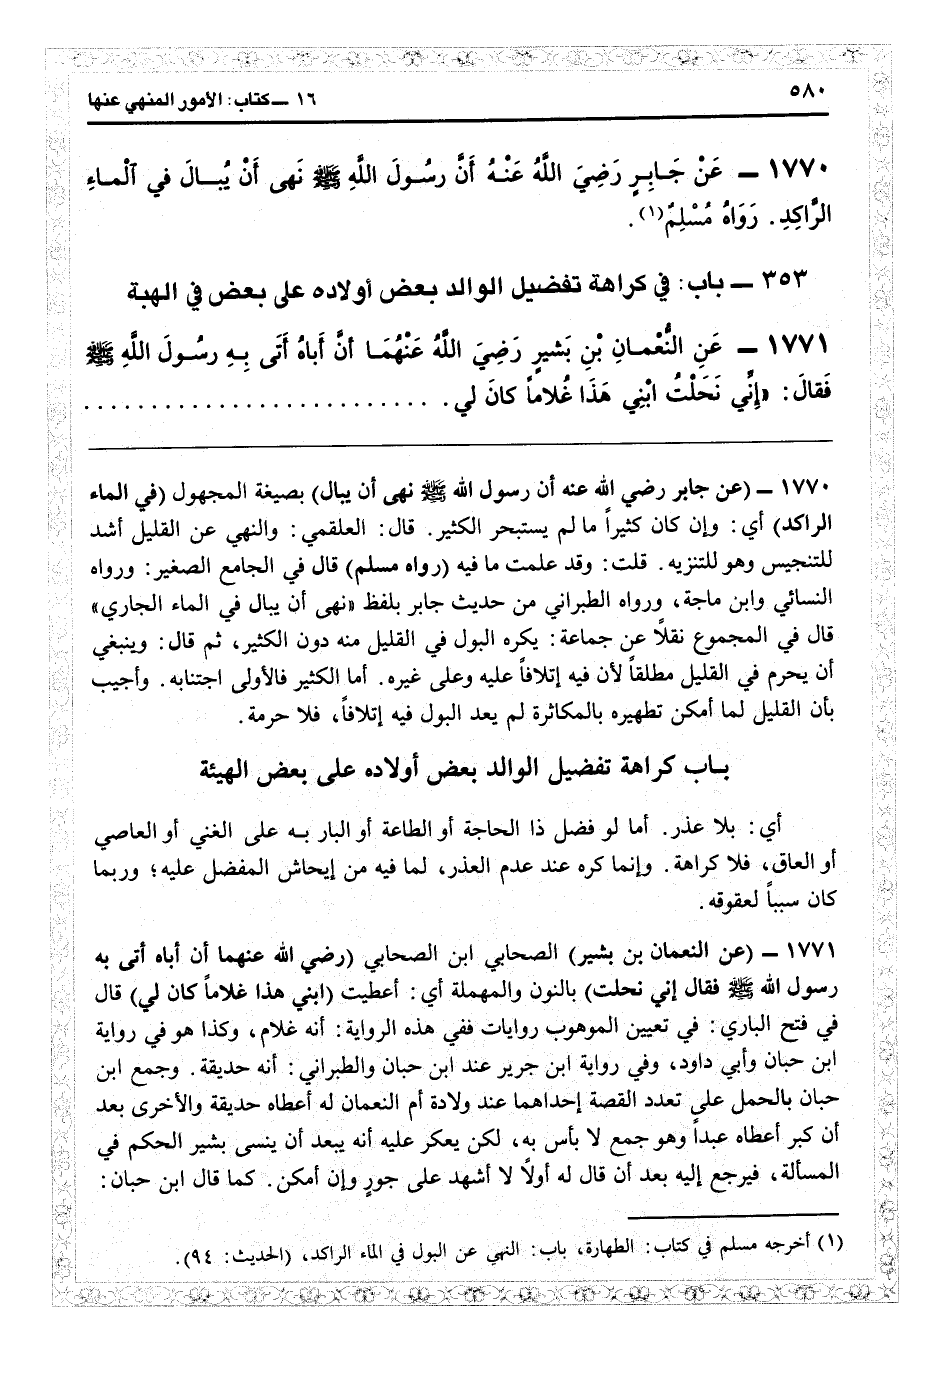 ٥٨٠
١٦ ــ كتاب: الأمور المنهي عنها
١٧٧٠ ــ عَنْ جَابِرٍ رَضِيَ اللَّهُ عَنْهُ أَنَّ رسُولَ اللَّهِ ﷺ نَهى أَنْ يُبالَ في ٱلْماءِ
الرَّاكِدِ. رَوَاهُ مُسْلِمٌ(١).
٣٥٣ ــ باب: في كراهة تفضيل الوالد بعض أولاده على بعض في الهبة
١٧٧١ ــ عَنِ النُّعْمانِ بْنِ بَشيرٍ رَضِيَ اللَّهُ عَنْهُمَا أنَّ أباهُ أَتَى بِهِ رسُولَ اللَّهِ ﷺ
فَقالَ: «إنِّي نَحَلْتُ ابْنِي هَذَا غُلاماً كانَ لي. . . . . . . . . . . . . . . . . . . . . . . . . . .
١٧٧٠ ــ (عن جابر رضي الله عنه أن رسول الله ﷺ نهى أن يبال) بصيغة المجهول (في الماء
الراكد) أي: وإن كان كثيراً ما لم يستبحر الكثير. قال: العلقمي: والنهي عن القليل أشد
للتنجيس وهو للتنزيه. قلت: وقد علمت ما فيه (رواه مسلم) قال في الجامع الصغير: ورواه
النسائي وابن ماجة، ورواه الطبراني من حديث جابر بلفظ «نهى أن يبال في الماء الجاري»
قال في المجموع نقلاً عن جماعة: يكره البول في القليل منه دون الكثير، ثم قال: وينبغي
أن يحرم في القليل مطلقاً لأن فيه إتلافاً عليه وعلى غيره. أما الكثير فالأولى اجتنابه. وأجيب
بأن القليل لما أمكن تطهيره بالمكاثرة لم يعد البول فيه إتلافاً، فلا حرمة.
باب كراهة تفضيل الوالد بعض أولاده على بعض الهيئة
أي: بلا عذر. أما لو فضل ذا الحاجة أو الطاعة أو البار به على الغني أو العاصي
أو العاق، فلا كراهة. وإنما كره عند عدم العذر، لما فيه من إيحاش المفضل عليه؛ وربما
كان سبباً لعقوقه.
١٧٧١ ــ (عن النعمان بن بشير) الصحابي ابن الصحابي (رضي الله عنهما أن أباه أتى به
رسول الله ﷺ فقال إني نحلت) بالنون والمهملة أي: أعطيت (ابني هذا غلاماً كان لي) قال
في فتح الباري: في تعيين الموهوب روايات ففي هذه الرواية: أنه غلام، وكذا هو في رواية
ابن حبان وأبي داود، وفي رواية ابن جرير عند ابن حبان والطبراني: أنه حديقة. وجمع ابن
حبان بالحمل على تعدد القصة إحداهما عند ولادة أم النعمان له أعطاه حديقة والأخرى بعد
أن كبر أعطاه عبداً وهو جمع لا بأس به، لكن يعكر عليه أنه يبعد أن ينسى بشير الحكم في
المسألة، فيرجع إليه بعد أن قال له أولاً لا أشهد على جورٍ وإن أمكن. كما قال ابن حبان:
(١) أخرجه مسلم في كتاب: الطهارة، باب: النهي عن البول في الماء الراكد، (الحديث: ٩٤).